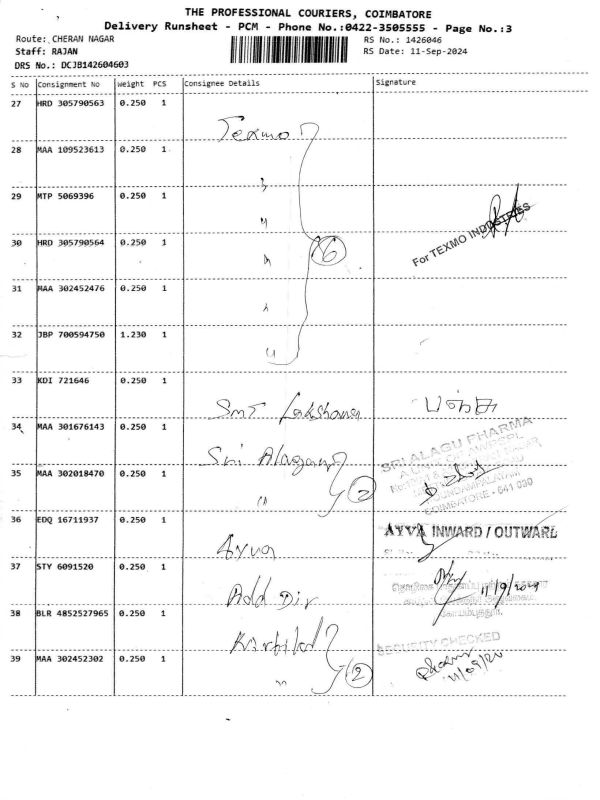 THE PROFESSIONAL COURIERS, COIMBATORE
Delivery Runsheet - PCM - Phone No.:0422-3505555 - Page No.:3
Route: CHERAN NAGAR
RS No.: 1426046
Staff: RAJAN
RS Date: 11-Sep-2024
DRS No.: DCJB142604603
S No Consignment No Weight PCS Consignee Details Signature
27 HRD 305790563 0.250 1
Texmo
28 MAA 109523613 0.250 1
29 MTP 5069396 0.250 1
For TEXMO INDUSTRIES
30 HRD 305790564 0.250 1
6
31 MAA 302452476 0.250 1
32 JBP 700594750 1.230 1
33 KDI 721646 0.250 1
34 MAA 301676143 0.250 1
SRI ALAGU PHARMA
35 MAA 302018470 0.250 1
2
COIMBATORE - 641 030
36 EDQ 16711937 0.250 1
Ayva
AYVA INWARD / OUTWARD
37 STY 6091520 0.250 1
Add Dir
11/9/2024
38 BLR 4852527965 0.250 1
SECURITY CHECKED
39 MAA 302452302 0.250 1
2